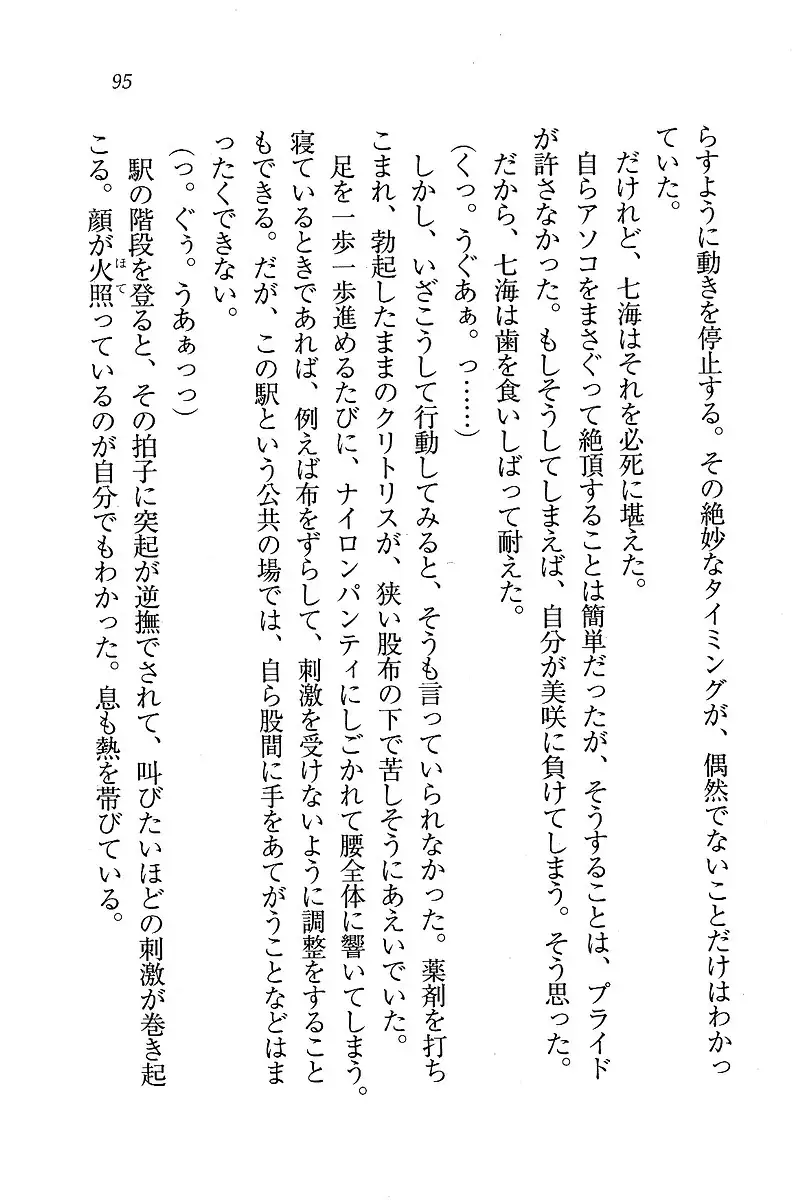 95
らすように動きを停止する。その絶妙なタイミングが、偶然でないことだけはわかっ
ていた。
だけれど、七海はそれを必死に堪えた。
自らアソコをまさぐって絶頂することは簡単だったが、そうすることは、プライド
が許さなかった。もしそうしてしまえば、自分が美咲に負けてしまう。そう思った。
だから、七海は歯を食いしばって耐えた。
（くっ。うぐあぁ。っ……）
しかし、いざこうして行動してみると、そうも言っていられなかった。薬剤を打ち
こまれ、勃起したままのクリトリスが、狭い股布の下で苦しそうにあえいでいた。
足を一歩一歩進めるたびに、ナイロンパンティにしごかれて腰全体に響いてしまう。
寝ているときであれば、例えば布をずらして、刺激を受けないように調整をすること
もできる。だが、この駅という公共の場では、自ら股間に手をあてがうことなどはま
ったくできない。
（っ。ぐぅ。うあぁっっ）
駅の階段を登ると、その拍子に突起が逆撫でされて、叫びたいほどの刺激が巻き起
こる。顔が火照っているのが自分でもわかった。息も熱を帯びている。
ほて